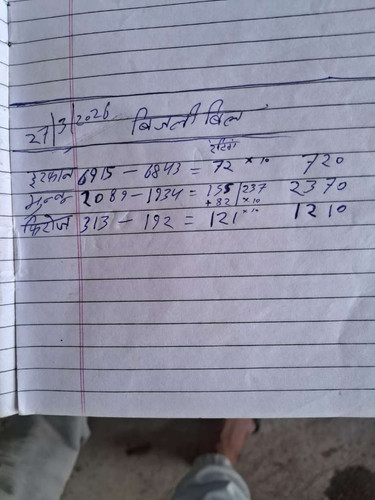 27/3/2026 बिजली बिल
रीडिंग
इरफान 6915 - 6843 = 72 ×10 720
2089 - 1934 = 155 | 237 2370
+ 82 | ×10
फिरोज 313 - 192 = 121 ×10 1210